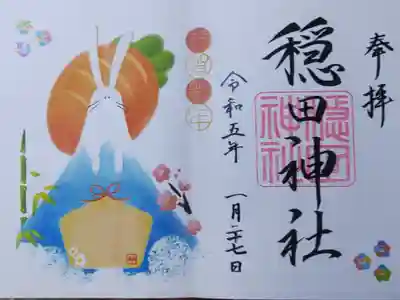 奉拝
穏田神社
令和五年
一月二十七日